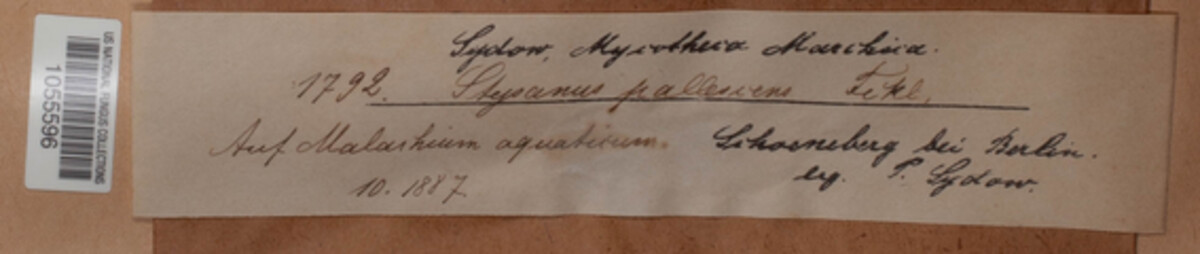 US NATIONAL FUNGUS COLLECTIONS
1055596
Sydow, Mycotheca Marchica.
1792. Stysanus pallescens Fckl.
Auf Malachium aquaticum. Schoeneberg bei Berlin.
10. 1887. leg. P. Sydow.